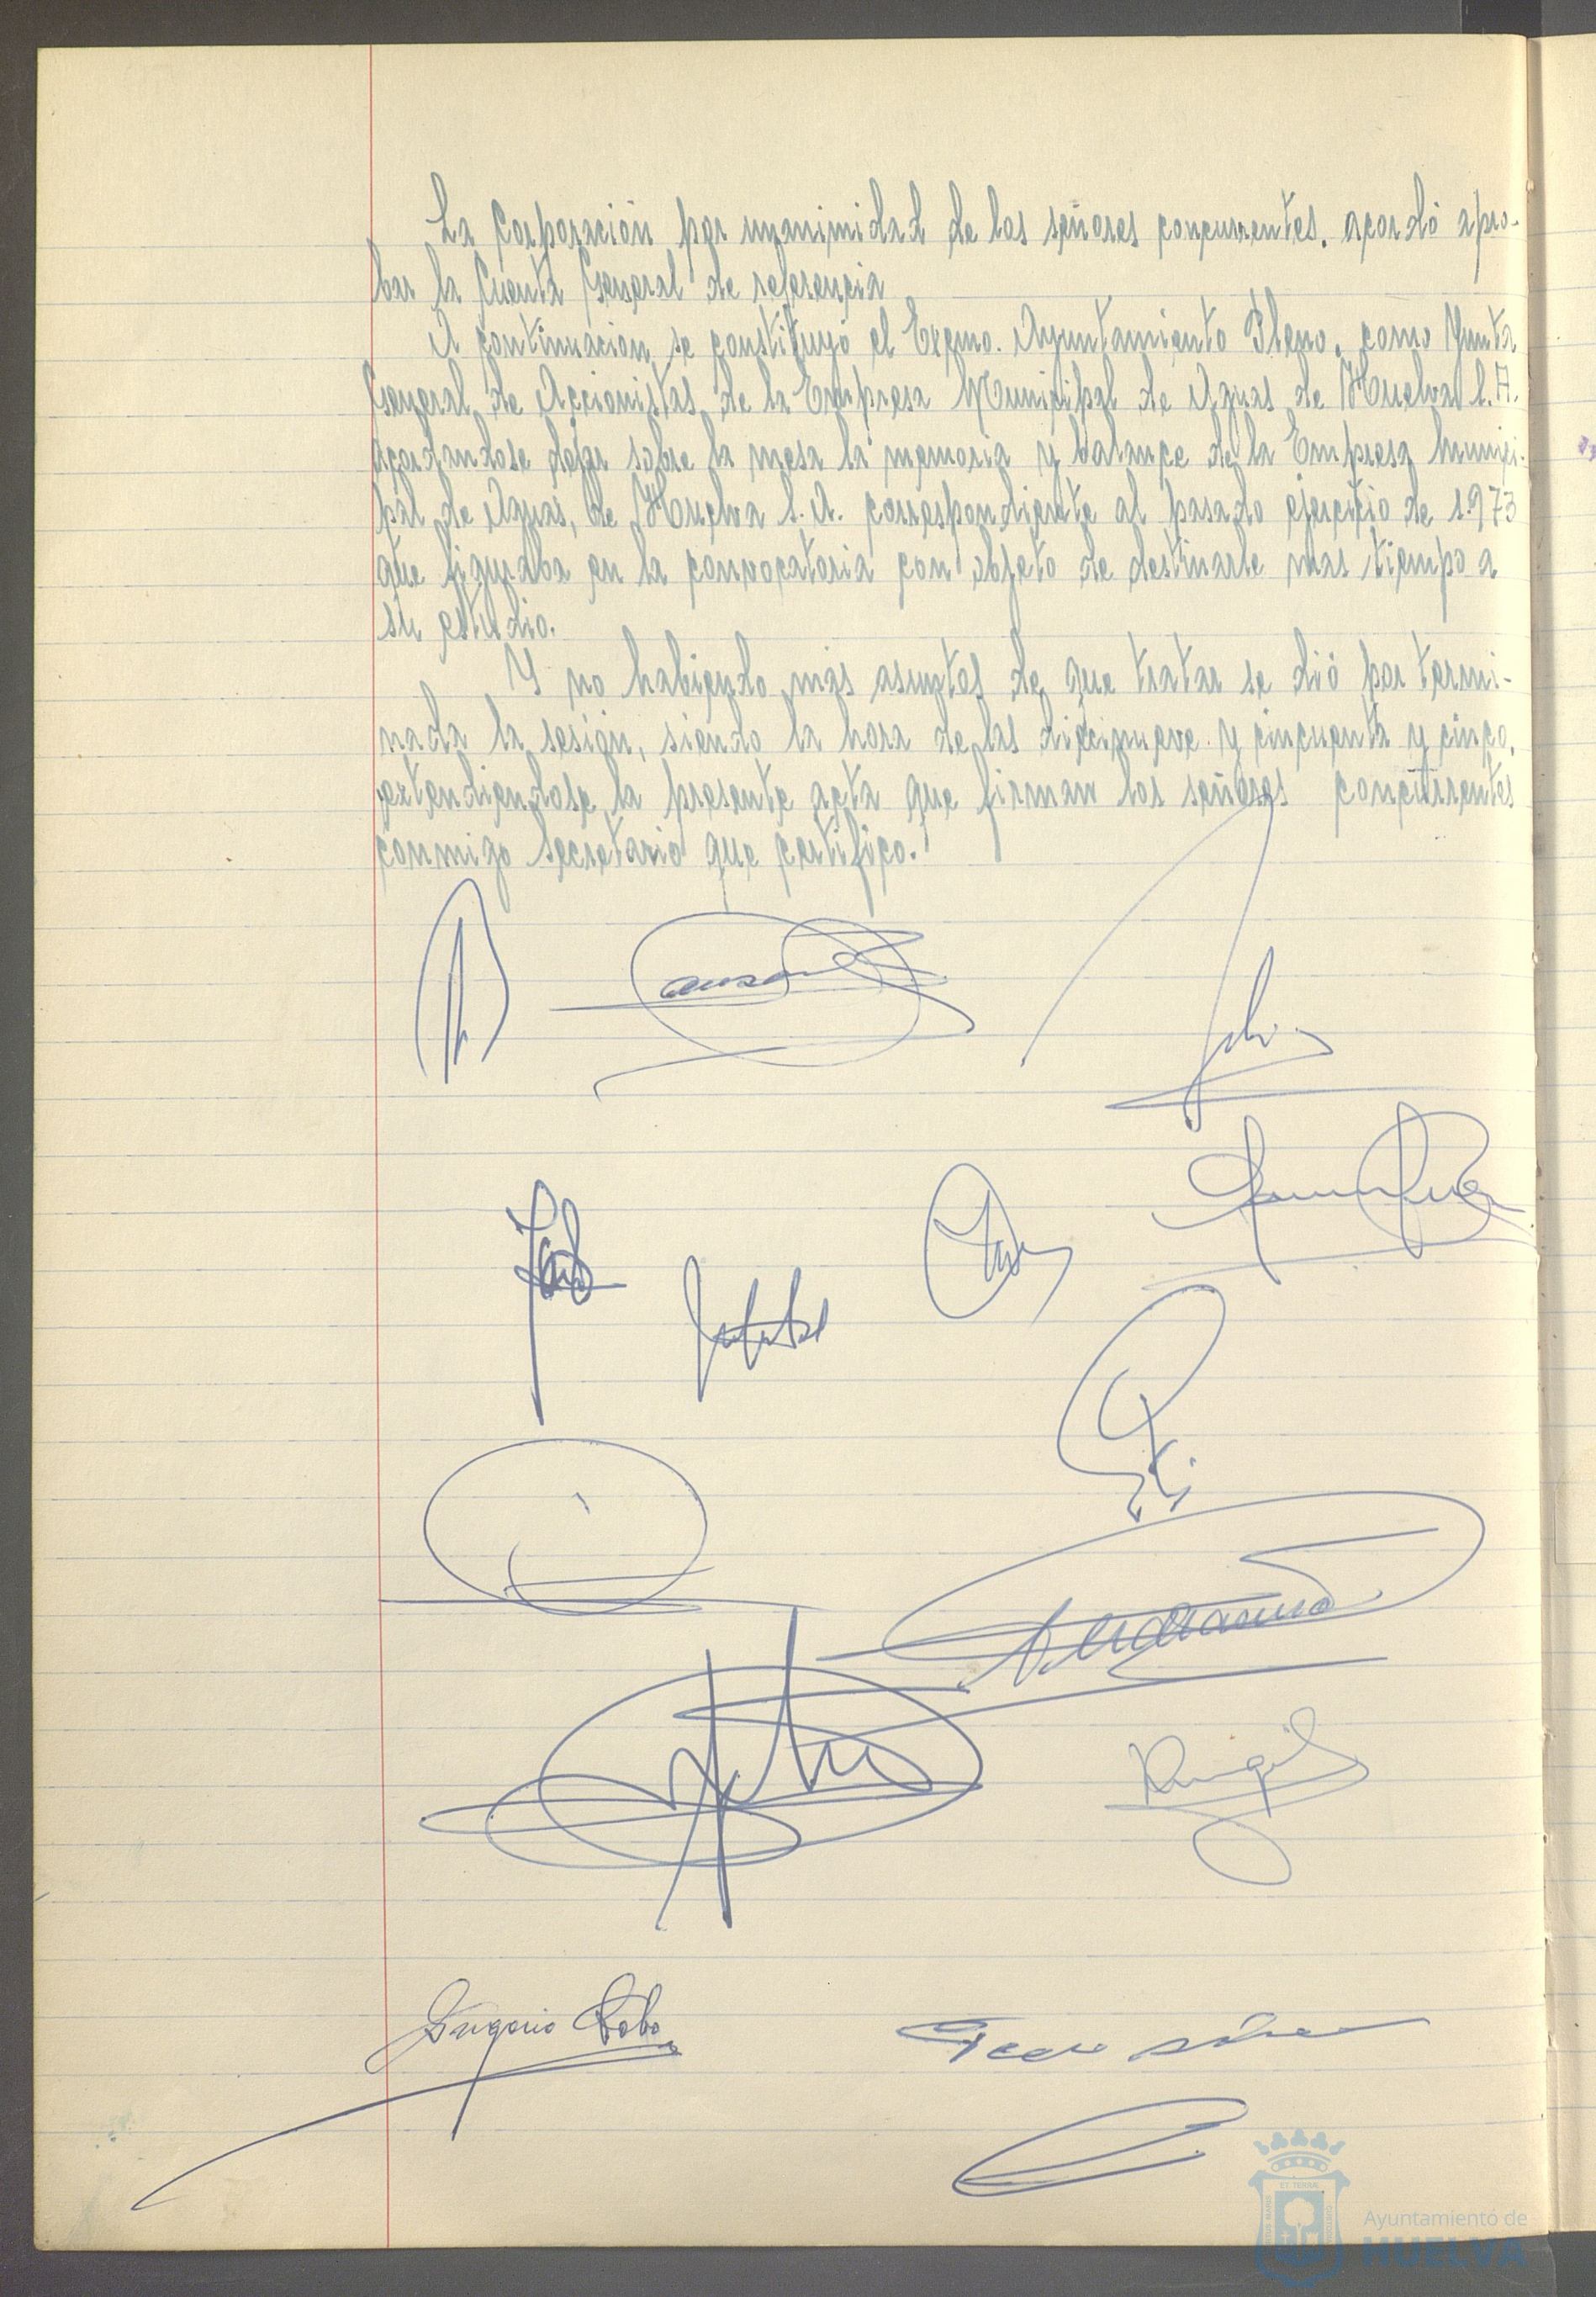 La Corporación por unanimidad de los señores concurrentes, acordó apro-
bar la Cuenta General de referencia
A continuación se constituyó el Excmo. Ayuntamiento Pleno, como Junta
General de Accionistas de la Empresa Municipal de Aguas de Huelva S.A.
acordandose dejar sobre la mesa la memoria y balance de la Empresa Munici-
pal de Aguas, de Huelva S.A. correspondiente al pasado ejercicio de 1.973
que figuraba en la convocatoria con objeto de destinarle mas tiempo a
su estudio.
Y no habiendo más asuntos de que tratar se dió por termi-
nada la sesión, siendo la hora de las diecinueve y cincuenta y cinco,
extendiendose la presente acta que firman los señores concurrentes
conmigo Secretario que certifico.
Ayuntamiento de
HUELVA